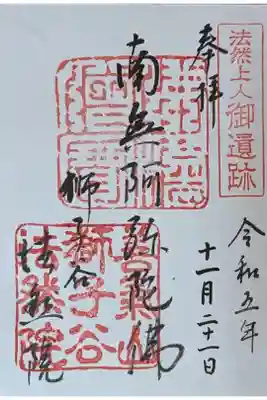 法然上人御遺跡
奉拝
令和五年
十一月二十一日
南無阿弥陀佛
獅子谷
法然院
獅子谷